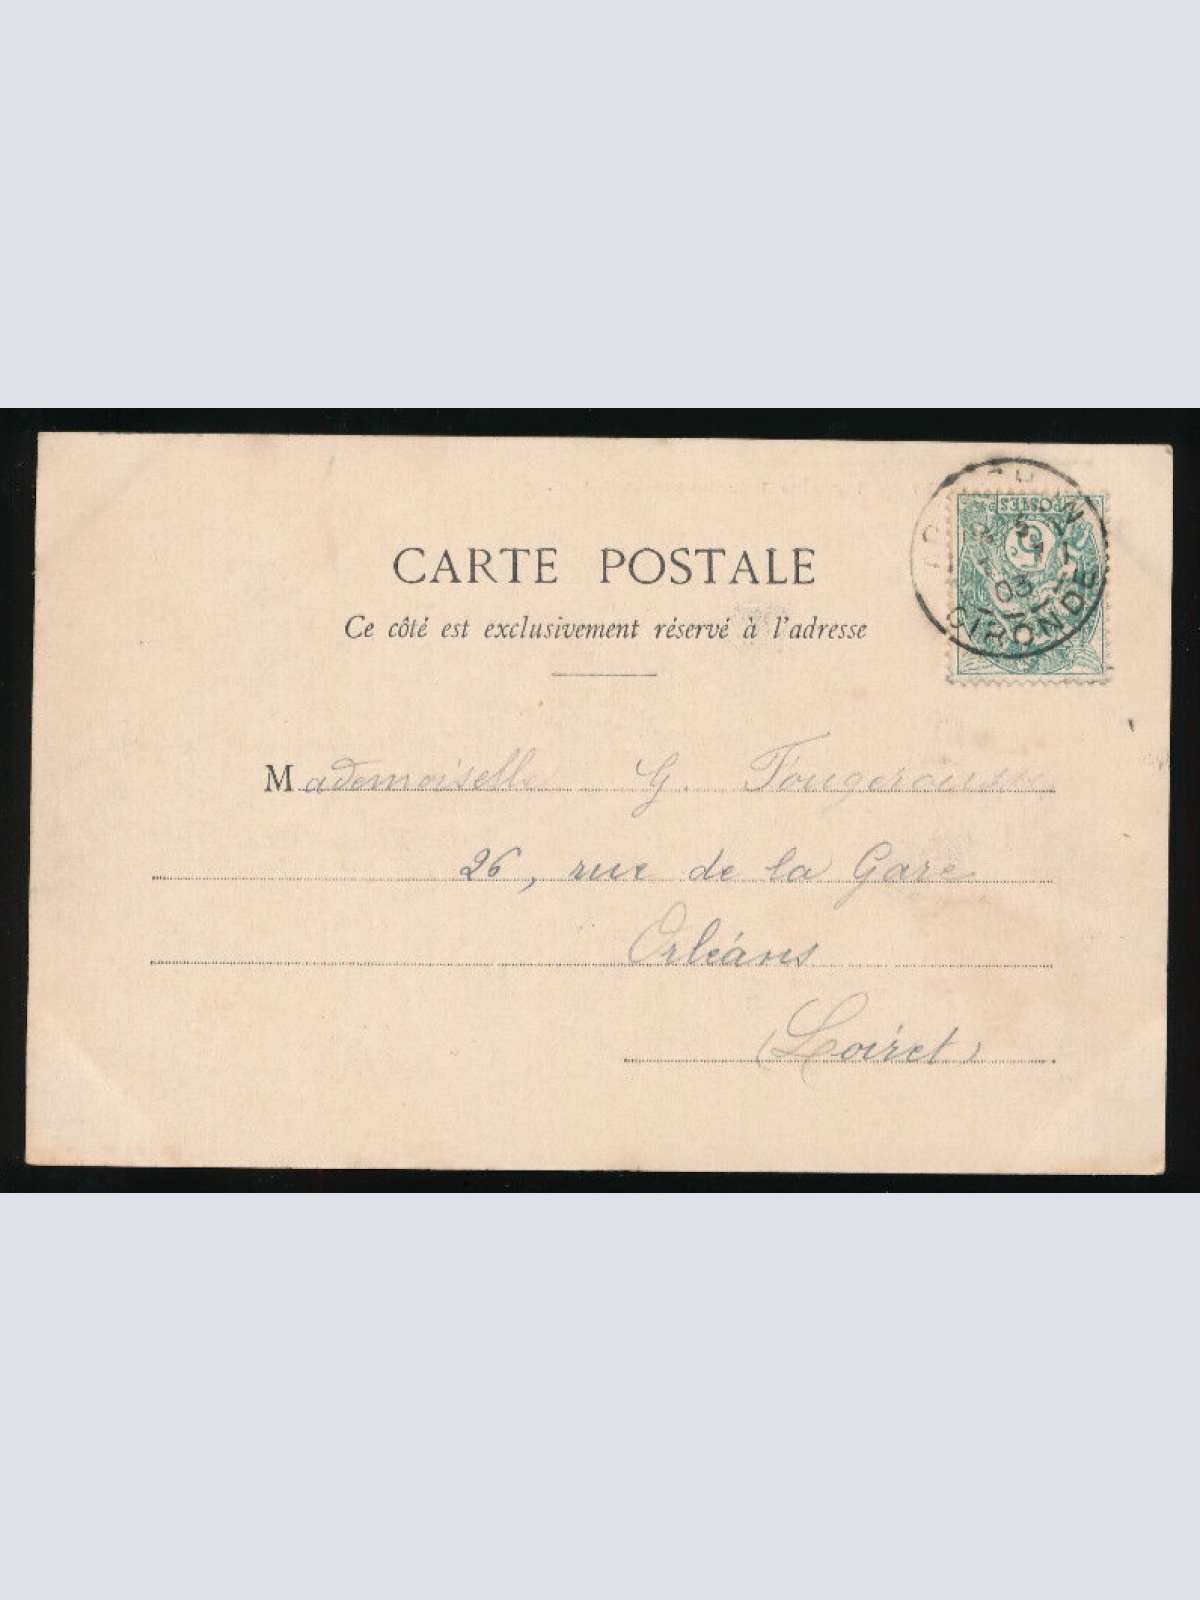 CARTE POSTALE
Ce côté est exclusivement réservé à l'adresse
POSTES
5
03
GIRONDE
Mademoiselle G. Fougerousse
26, rue de la Gare
Orléans
(Loiret)